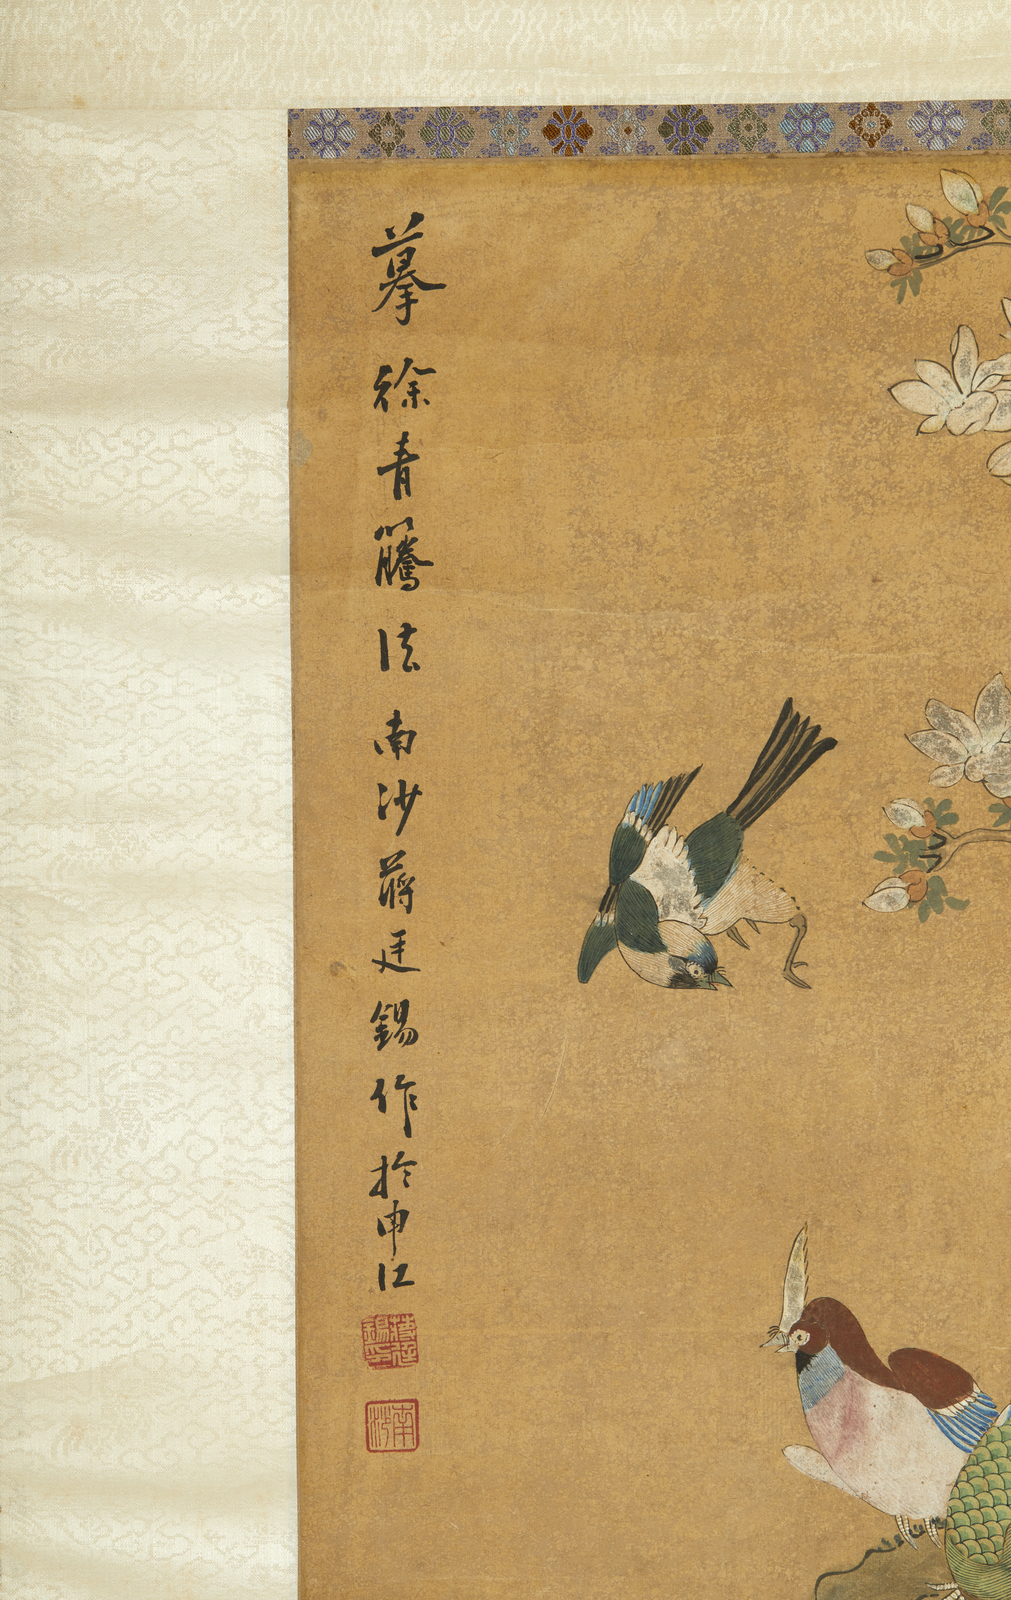 摹徐青藤法南沙蔣廷錫作於申江
蔣廷錫印
南沙